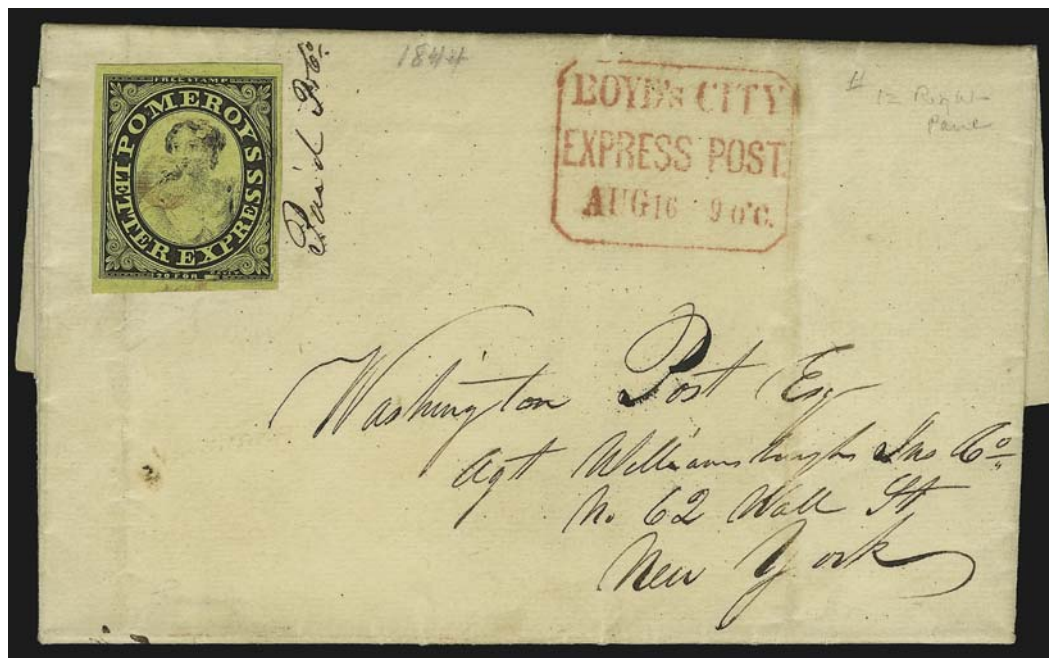 FREE STAMP
POMEROY'S
LETTER EXPRESS
20 FOR
Paid
1844
BOYD'S CITY
EXPRESS POST.
AUG 16 9 O'C.
12 Right
Pane
Washington Post Esq
Agt Williamsburgh Ins Co
No 62 Wall St
New York